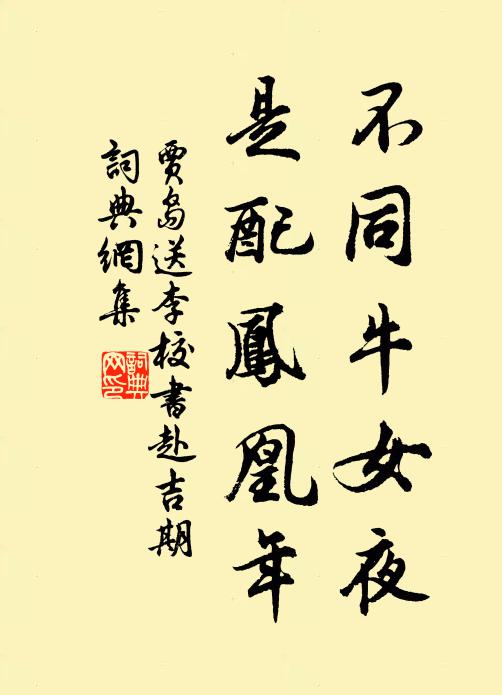 不同牛女夜
是配鳳凰年
賈島送李校書赴吉期
詞典網集
詞典網印